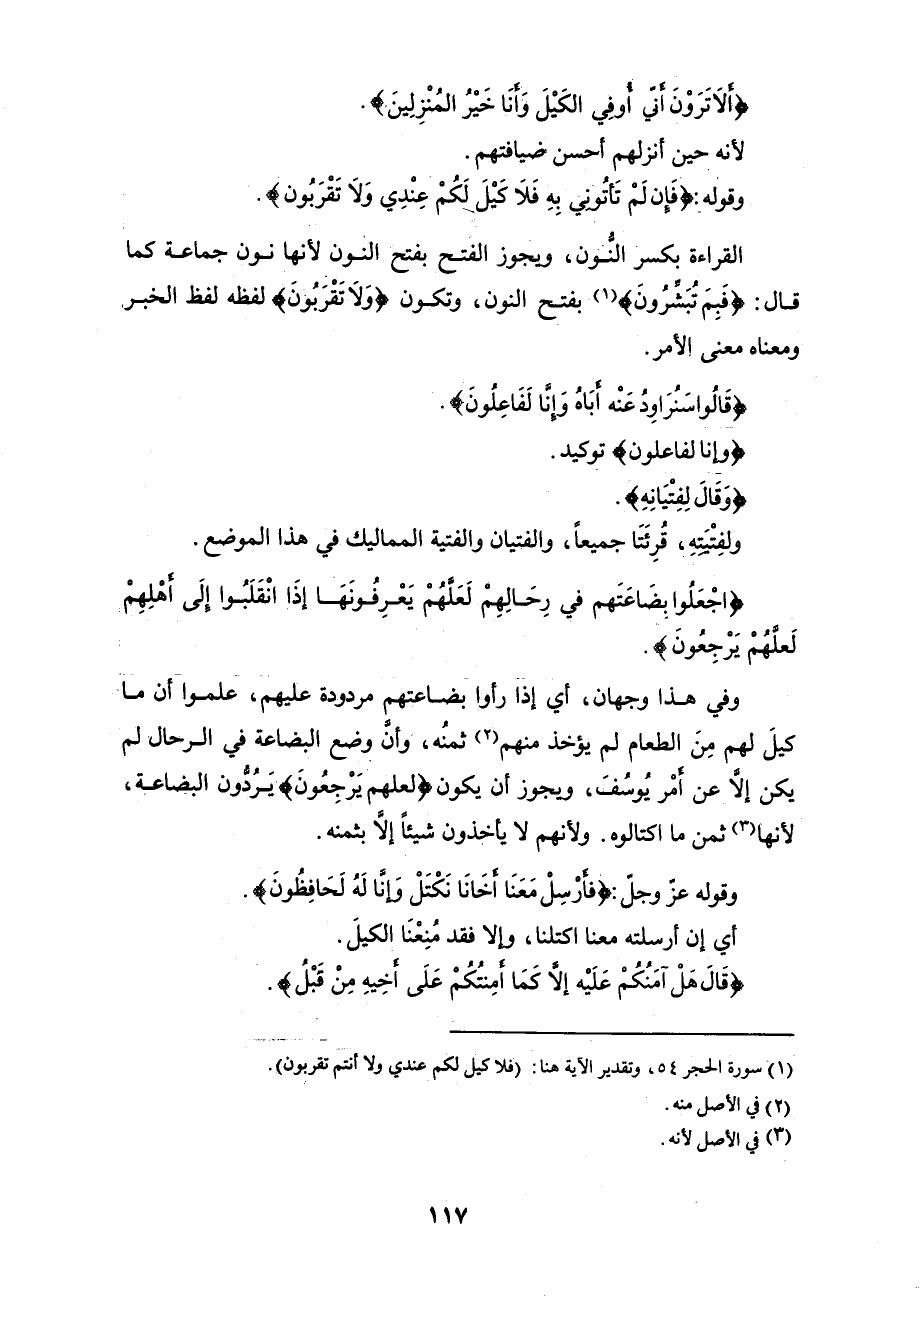 ﴿أَلَا تَرَوْنَ أَنِّي أُوفِي الكَيْلَ وَأَنَا خَيْرُ المُنْزِلِينَ﴾.
لأنه حين أنزلهم أحسن ضيافتهم.
وقوله: ﴿فَإِن لَمْ تَأْتُونِي بِهِ فَلَا كَيْلَ لَكُمْ عِنْدِي وَلَا تَقْرَبُون﴾.
القراءة بكسر النُّون، ويجوز الفتح بفتح النون لأنها نون جماعة كما
قال: ﴿فَبِمَ تُبَشِّرُونَ﴾(١) بفتح النون، وتكون ﴿وَلَا تَقْرَبُون﴾ لفظه لفظ الخبر
ومعناه معنى الأمر.
﴿قَالُوا سَنُرَاوِدُ عَنْه أَبَاهُ وَإِنَّا لَفَاعِلُونَ﴾.
﴿وإنا لفاعلون﴾ توكيد.
﴿وَقَالَ لِفِتْيَانِهِ﴾.
ولفِتْيَتِهِ، قُرِئَتَا جميعاً، والفتيان والفتية المماليك في هذا الموضع.
﴿اجْعَلُوا بِضَاعَتَهم في رِحَالِهِمْ لَعَلَّهُمْ يَعْرِفُونَهَا إِذَا انْقَلَبُوا إِلَى أَهْلِهِمْ
لَعلَّهُمْ يَرْجِعُونَ﴾.
وفي هذا وجهان، أي إذا رأوا بضاعتهم مردودة عليهم، علموا أن ما
كيلَ لهم مِنَ الطعام لم يؤخذ منهم(٢) ثمنُه، وأنَّ وضع البضاعة في الرحال لم
يكن إلَّا عن أَمْر يُوسُفَ، ويجوز أن يكون ﴿لعلهم يَرْجِعُونَ﴾ يَرُدُّون البضاعة،
لأنها(٣) ثمن ما اكتالوه. ولأنهم لا يأخذون شيئاً إلَّا بثمنه.
وقوله عزّ وجلّ: ﴿فأَرْسِلْ مَعَنَا أَخَانَا نَكْتَلْ وَإِنَّا لَهُ لَحَافِظُونَ﴾.
أي إن أرسلته معنا اكتلنا، وإلا فقد مُنِعْنَا الكيلَ.
﴿قَالَ هَلْ آمَنُكُمْ عَلَيْه إلَّا كَمَا أَمِنتُكُمْ عَلَى أَخِيهِ مِنْ قَبْلُ﴾.
(١) سورة الحجر ٥٤، وتقدير الآية هنا: (فلا كيل لكم عندي ولا أنتم تقربون).
(٢) في الأصل منه.
(٣) في الأصل لأنه.
١١٧